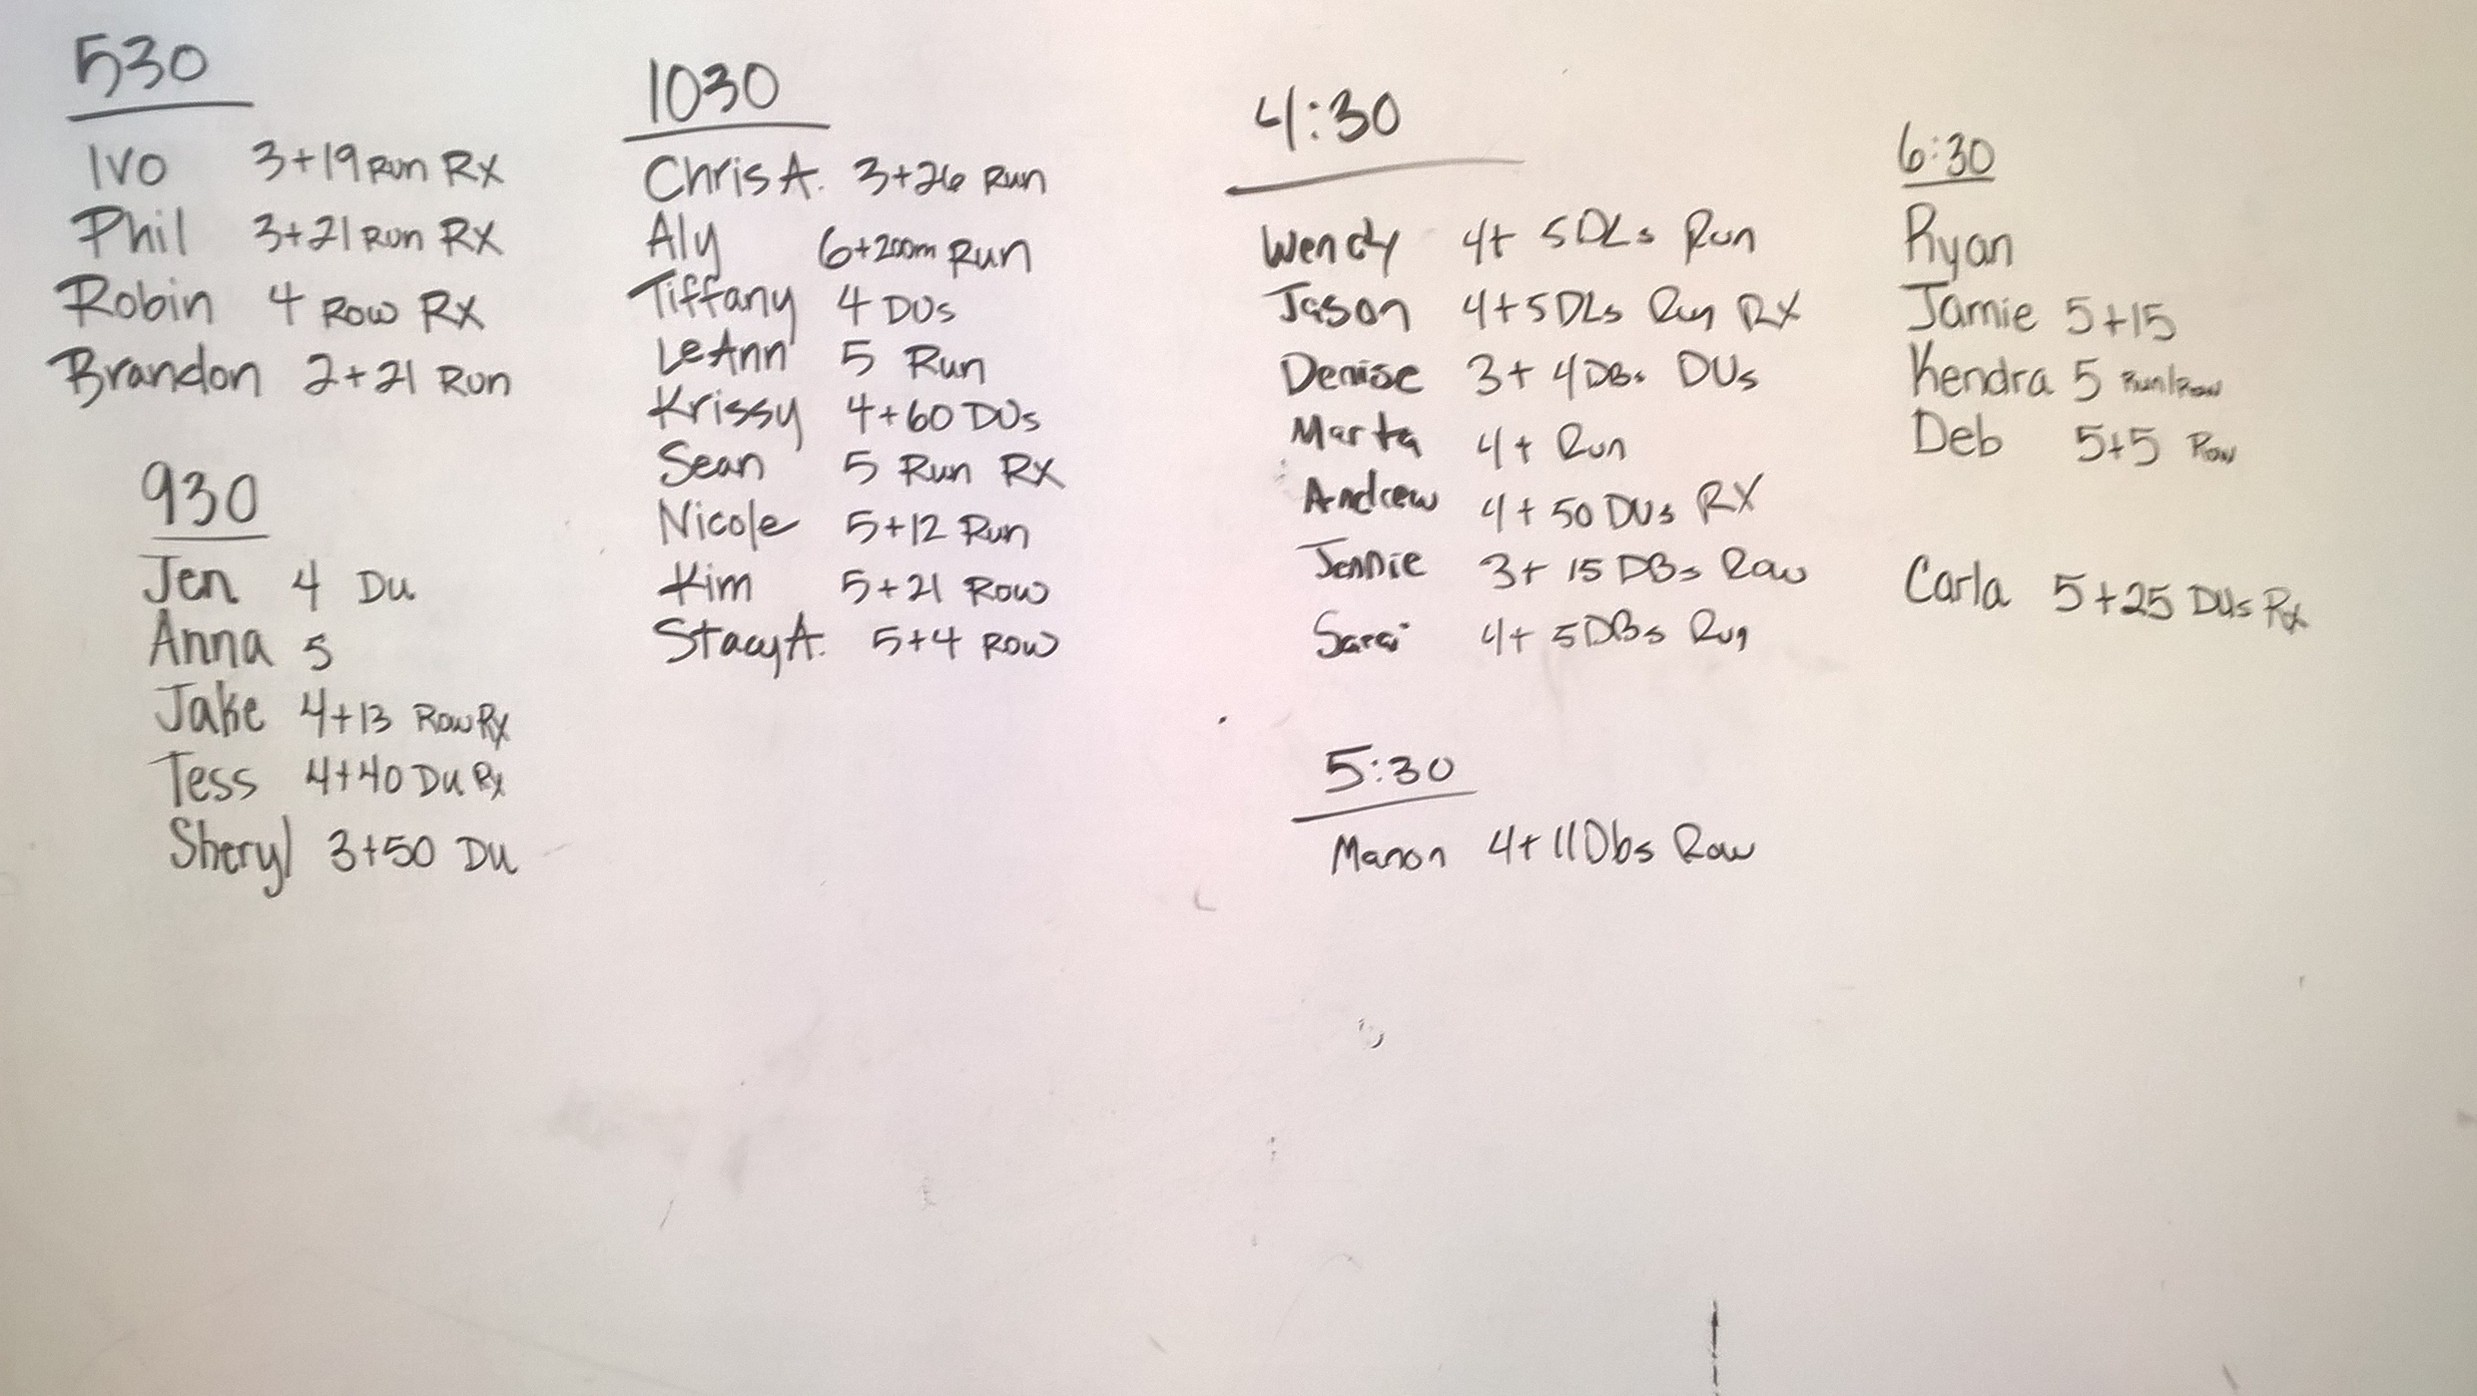 530
Ivo 3+19 Run Rx
Phil 3+21 Run RX
Robin 4 Row RX
Brandon 2+21 Run
930
Jen 4 Du
Anna 5
Jake 4+13 Row Rx
Tess 4+40 Du Rx
Sheryl 3+50 Du
1030
Chris A. 3+26 Run
Aly 6+200m Run
Tiffany 4 DUs
LeAnn 5 Run
Krissy 4+60 DUs
Sean 5 Run RX
Nicole 5+12 Run
Kim 5+21 Row
Stacy A. 5+4 Row
4:30
Wendy 4+ 5DLs Run
Jason 4+5DLs Run RX
Denise 3+ 4DBs DUs
Marta 4+ Run
Andrew 4+ 50 DUs RX
Jennie 3+ 15 DBs Row
4+ 5DBs Run
5:30
Manon 4+ 11Dbs Row
6:30
Ryan
Jamie 5+15
Kendra 5 Run/Row
Deb 5+5 Row
Carla 5+25 DUs Rx